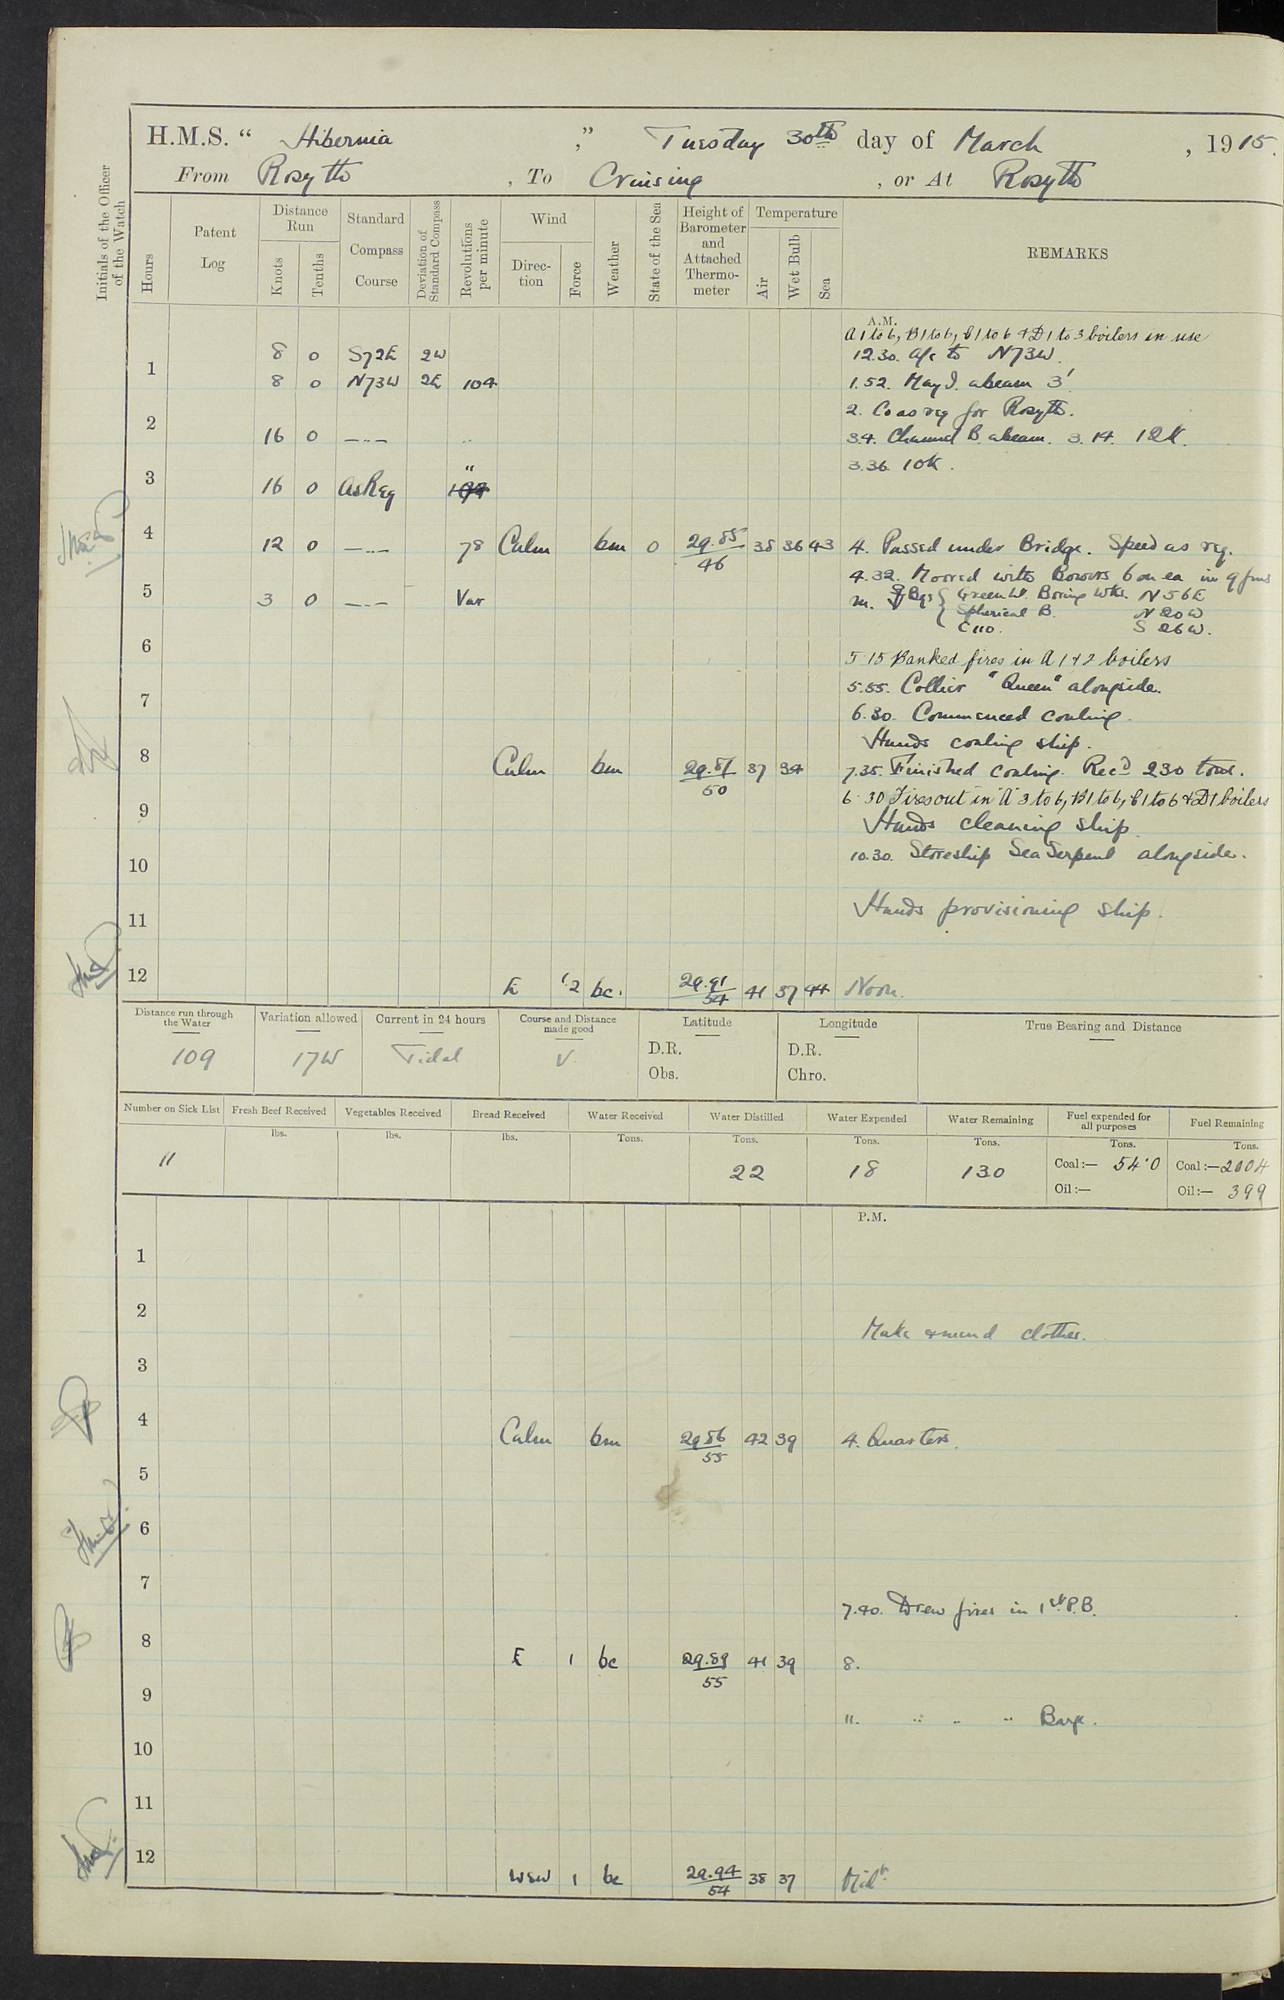 H.M.S. “ Hibernia ,” Tuesday 30th day of March , 1915.
From Rosyth , To Cruising , or At Rosyth
Initials of the Officer of the Watch
Hours
Patent Log
Distance Run
Knots
Tenths
Standard Compass Course
Deviation of Standard Compass
Revolutions per minute
Wind
Direction
Force
Weather
State of the Sea
Height of Barometer and Attached Thermometer
Temperature
Air
Wet Bulb
Sea
REMARKS
A.M.
A 1 to 6, B 1 to 6, C 1 to 6 & D 1 to 3 boilers in use
8 0 S72E 2W 12.30. A/c to N73W.
1 8 0 N73W 2E 104 1.52. May I. abeam 3'
2. Co as req for Rosyth.
2 16 0 —..— .. 3.4. Channel B. abeam. 3.14. 12K.
3.36. 10K.
3 16 0 As Req "
4 12 0 —..— 78 Calm bm 0 29.85 38 36 43 4. Passed under Bridge. Speed as req.
46
4.32. Moored with Bowers 6 on ea in 9 fms
5 3 0 —..— Var m. Bgs { Green Lt. Boring Wks. N56E
Spherical B. N20W
C110. S26W.
6 5.15 Banked fires in A 1 & 2 boilers
5.55. Collier "Queen" alongside.
7 6.30. Commenced coaling.
Hands coaling ship.
8 Calm bm 29.87 37 34 7.35. Finished coaling. Recd 230 tons.
50
6.30 Fires out in "A" 3 to 6, B 1 to 6, C 1 to 6 & D 1 boilers
9 Hands cleaning ship.
10 10.30. Storeship Sea Serpent alongside.
11 Hands provisioning ship.
12 E 1.2 bc. 29.91 41 37 44 Noon.
54
Distance run through the Water
Variation allowed
Current in 24 hours
Course and Distance made good
Latitude
Longitude
True Bearing and Distance
109 17W Tidal V D.R. D.R.
Obs. Chro.
Number on Sick List
Fresh Beef Received
Vegetables Received
Bread Received
Water Received
Water Distilled
Water Expended
Water Remaining
Fuel expended for all purposes
Fuel Remaining
lbs. lbs. lbs. Tons. Tons. Tons. Tons. Tons. Tons.
11 22 18 130 Coal:— 54.0 Coal:— 2004
Oil:— Oil:— 399
P.M.
1
2 Make & mend clothes.
3
4 Calm bm 29.86 42 39 4. Quarters.
55
5
6
7 7.40. Drew fires in 1st P.B.
8 E 1 bc 29.89 41 39 8.
55
9 11. .. .. .. Barge.
10
11
12 WSW 1 bc 29.94 38 37 Midt
54